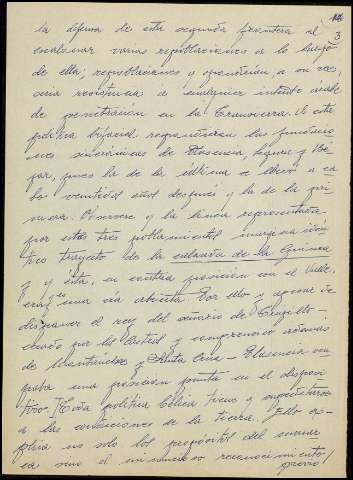 3
la defensa de esta segunda frontera al
escalonar varias repoblaciones a lo largo
de ella; repoblaciones q opondrían, a su vez,
seria resistencia a cualquier intento árabe
de penetración en la Transierra. A esta
política bifocal responderían las fundacio
nes sincrónicas de Plasencia, Segura y Bé
jar, pues la de la última se llevó a ca
bo veintidós años después q la de la pri
mera. Obsérvese q la línea representada
por estos tres poblamientos margina idén
tico trayecto de la calzada de la Guinea
y q ésta, en contra posición con el Valle,
era una vía abierta. Por ello y a pesar de
disponer el rey del señorío de
por los y comprendió además
de y Santa Cruz – Plasencia ocu
paba una posición punta en el disposi
tivo. Toda política bélica tiene q sujetarse
a las condiciones de la tierra. Ello ex
plica no solo los propósitos del monar
ca sino el minucioso reconocimiento
previo